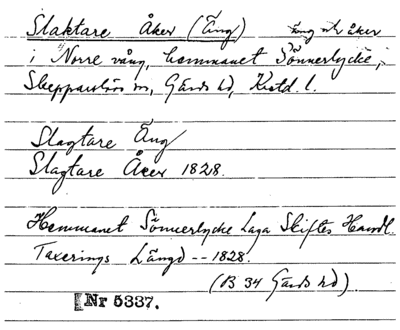 Slaktare Åker (Äng) äng och åker
i Norre vång, hemmanet Sönnerlycke,
Skepparslövs sn, Gärds hd, Kristd. l.
Slagtare Äng
Slagtare Åker 1828.
Hemmanet Sönnerlycke Laga Skiftes Handl.
Taxerings Längd -- 1828.
(B 34 Gärds hd).
Nr 5337.